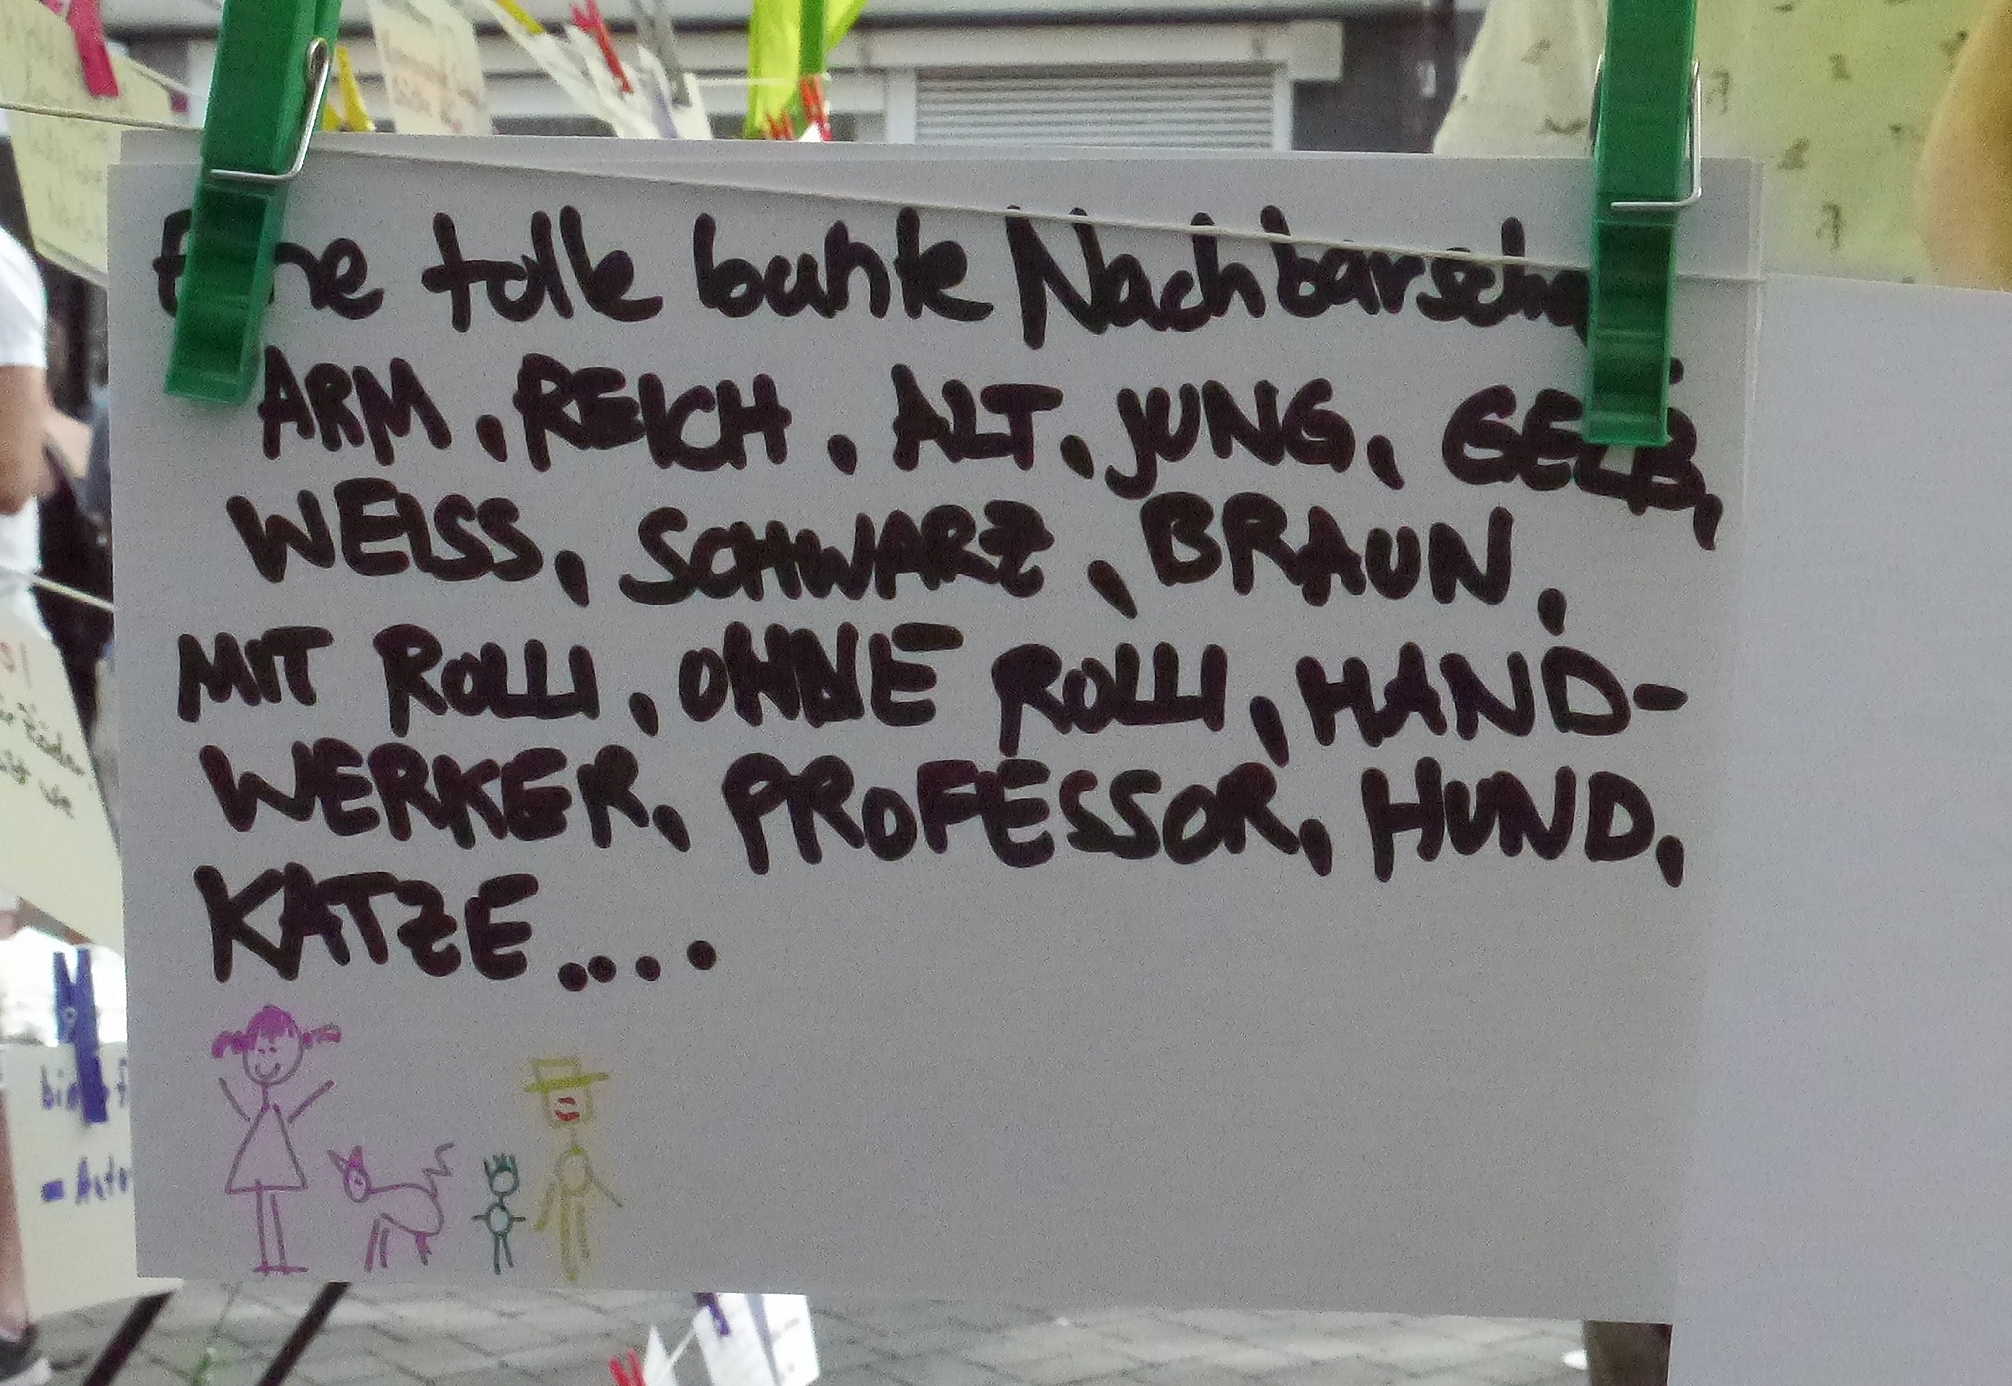 Eine tolle bunte Nachbarschaft
ARM, REICH, ALT, JUNG, GELB,
WEISS, SCHWARZ, BRAUN,
MIT ROLLI, OHNE ROLLI, HAND-
WERKER, PROFESSOR, HUND,
KATZE....